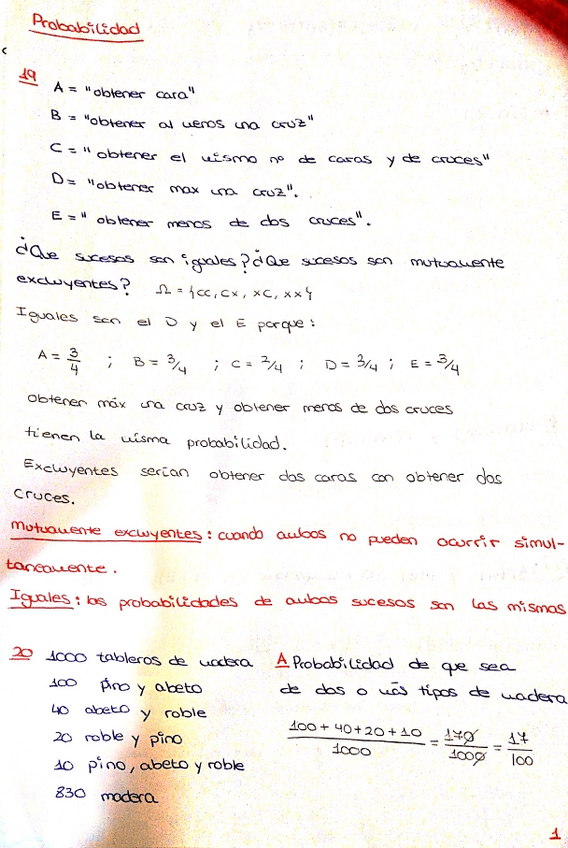 Probabilidad
19
A = "obtener cara"
B = "obtener al menos una cruz"
C = "obtener el mismo nº de caras y de cruces"
D = "obtener max una cruz".
E = "obtener menos de dos cruces".
¿Que sucesos son iguales? ¿Que sucesos son mutuamente
excluyentes? Ω = {cc, cx, xc, xx}
Iguales son el D y el E porque:
A = 3/4 ; B = 3/4 ; C = 2/4 ; D = 3/4 ; E = 3/4
obtener máx una cruz y obtener menos de dos cruces
tienen la misma probabilidad.
Excluyentes serian obtener dos caras con obtener dos
cruces.
Mutuamente excluyentes: cuando ambos no pueden ocurrir simul-
taneamente.
Iguales: las probabilidades de ambos sucesos son las mismas
20 1000 tableros de madera
100 pino y abeto
40 abeto y roble
20 roble y pino
10 pino, abeto y roble
830 madera
A Probabilidad de que sea
de dos o más tipos de madera
100 + 40 + 20 + 10 / 1000 = 170/1000 = 17/100
1